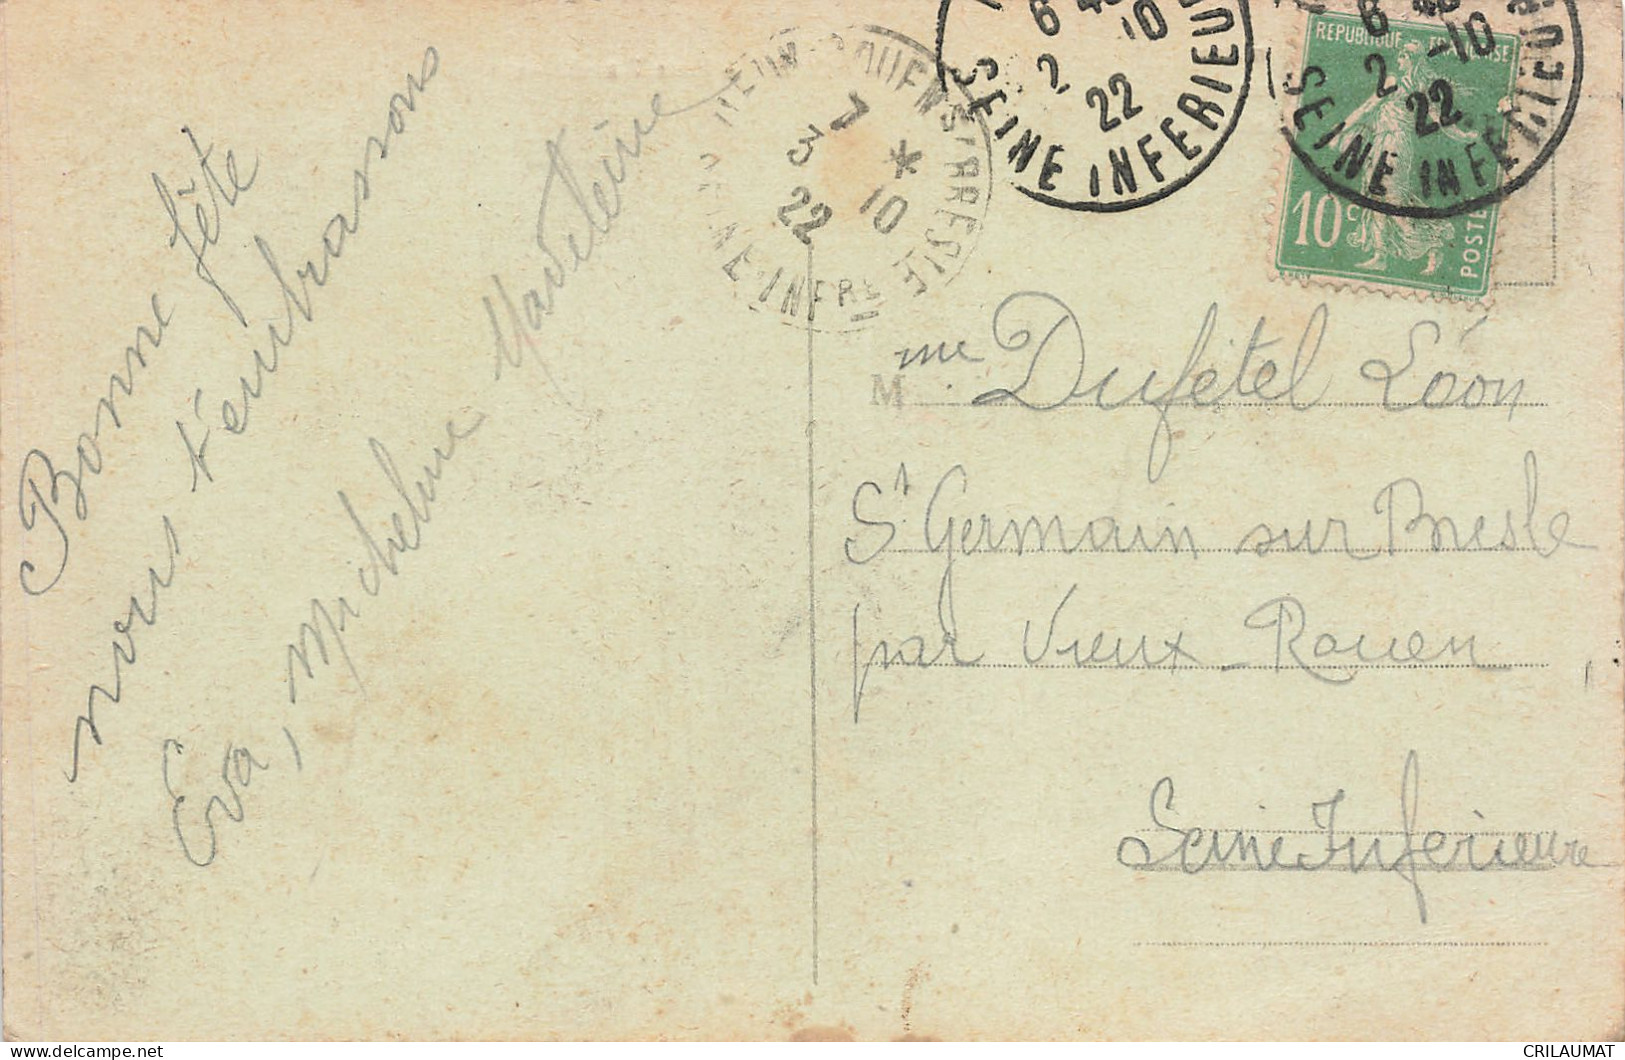 Bonne fête
nous t'embrassons
Eva, Micheline Madeleine
VIEUX-ROUEN S/ BRESLE
7 *
3 10
22
SEINE-INFRE
6 10
2 22
SEINE INFERIEURE
6 -10
2 22
SEINE INFERIEURE
REPUBLIQUE FRANÇAISE
10c
POSTES
Mme Dufétel Léon
St Germain sur Bresle
par Vieux-Rouen
Seine Inférieure
CRILAUMAT